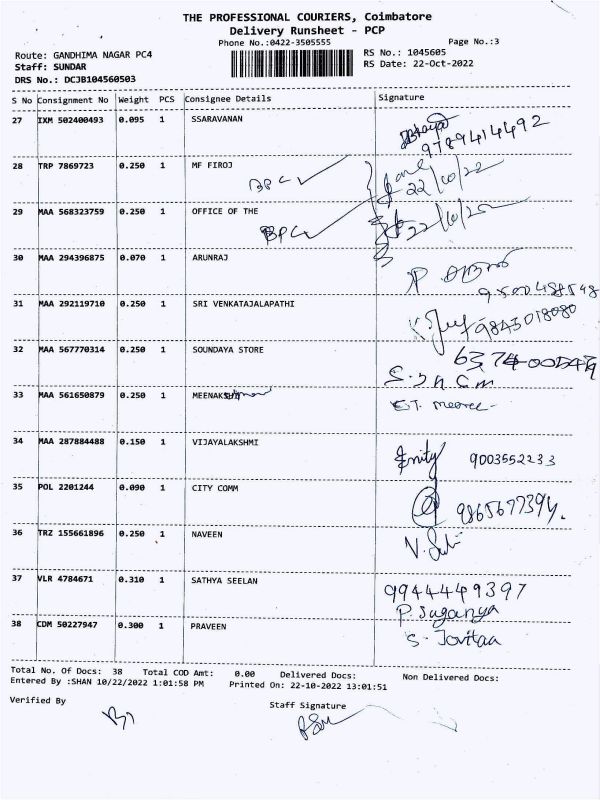 THE PROFESSIONAL COURIERS, Coimbatore
Delivery Runsheet - PCP
Phone No.:0422-3505555 Page No.:3
Route: GANDHIMA NAGAR PC4 RS No.: 1045605
Staff: SUNDAR RS Date: 22-Oct-2022
DRS No.: DCJB104560503
S No Consignment No Weight PCS Consignee Details Signature
27 IXM 502400493 0.095 1 SSARAVANAN
9789414492
28 TRP 7869723 0.250 1 MF FIROJ
BPC 22/10/22
29 MAA 568323759 0.250 1 OFFICE OF THE
BPC 22/10/22
30 MAA 294396875 0.070 1 ARUNRAJ
P.
31 MAA 292119710 0.250 1 SRI VENKATAJALAPATHI
9843018080
32 MAA 567770314 0.250 1 SOUNDAYA STORE
33 MAA 561650879 0.250 1
34 MAA 287884488 0.150 1 VIJAYALAKSHMI
9003552233
35 POL 2201244 0.090 1 CITY COMM
36 TRZ 155661896 0.250 1 NAVEEN
37 VLR 4784671 0.310 1 SATHYA SEELAN
9944449397
P. Suganya
38 CDM 50227947 0.300 1 PRAVEEN
S.
Total No. Of Docs: 38 Total COD Amt: 0.00 Delivered Docs: Non Delivered Docs:
Entered By :SHAN 10/22/2022 1:01:58 PM Printed On: 22-10-2022 13:01:51
Verified By Staff Signature